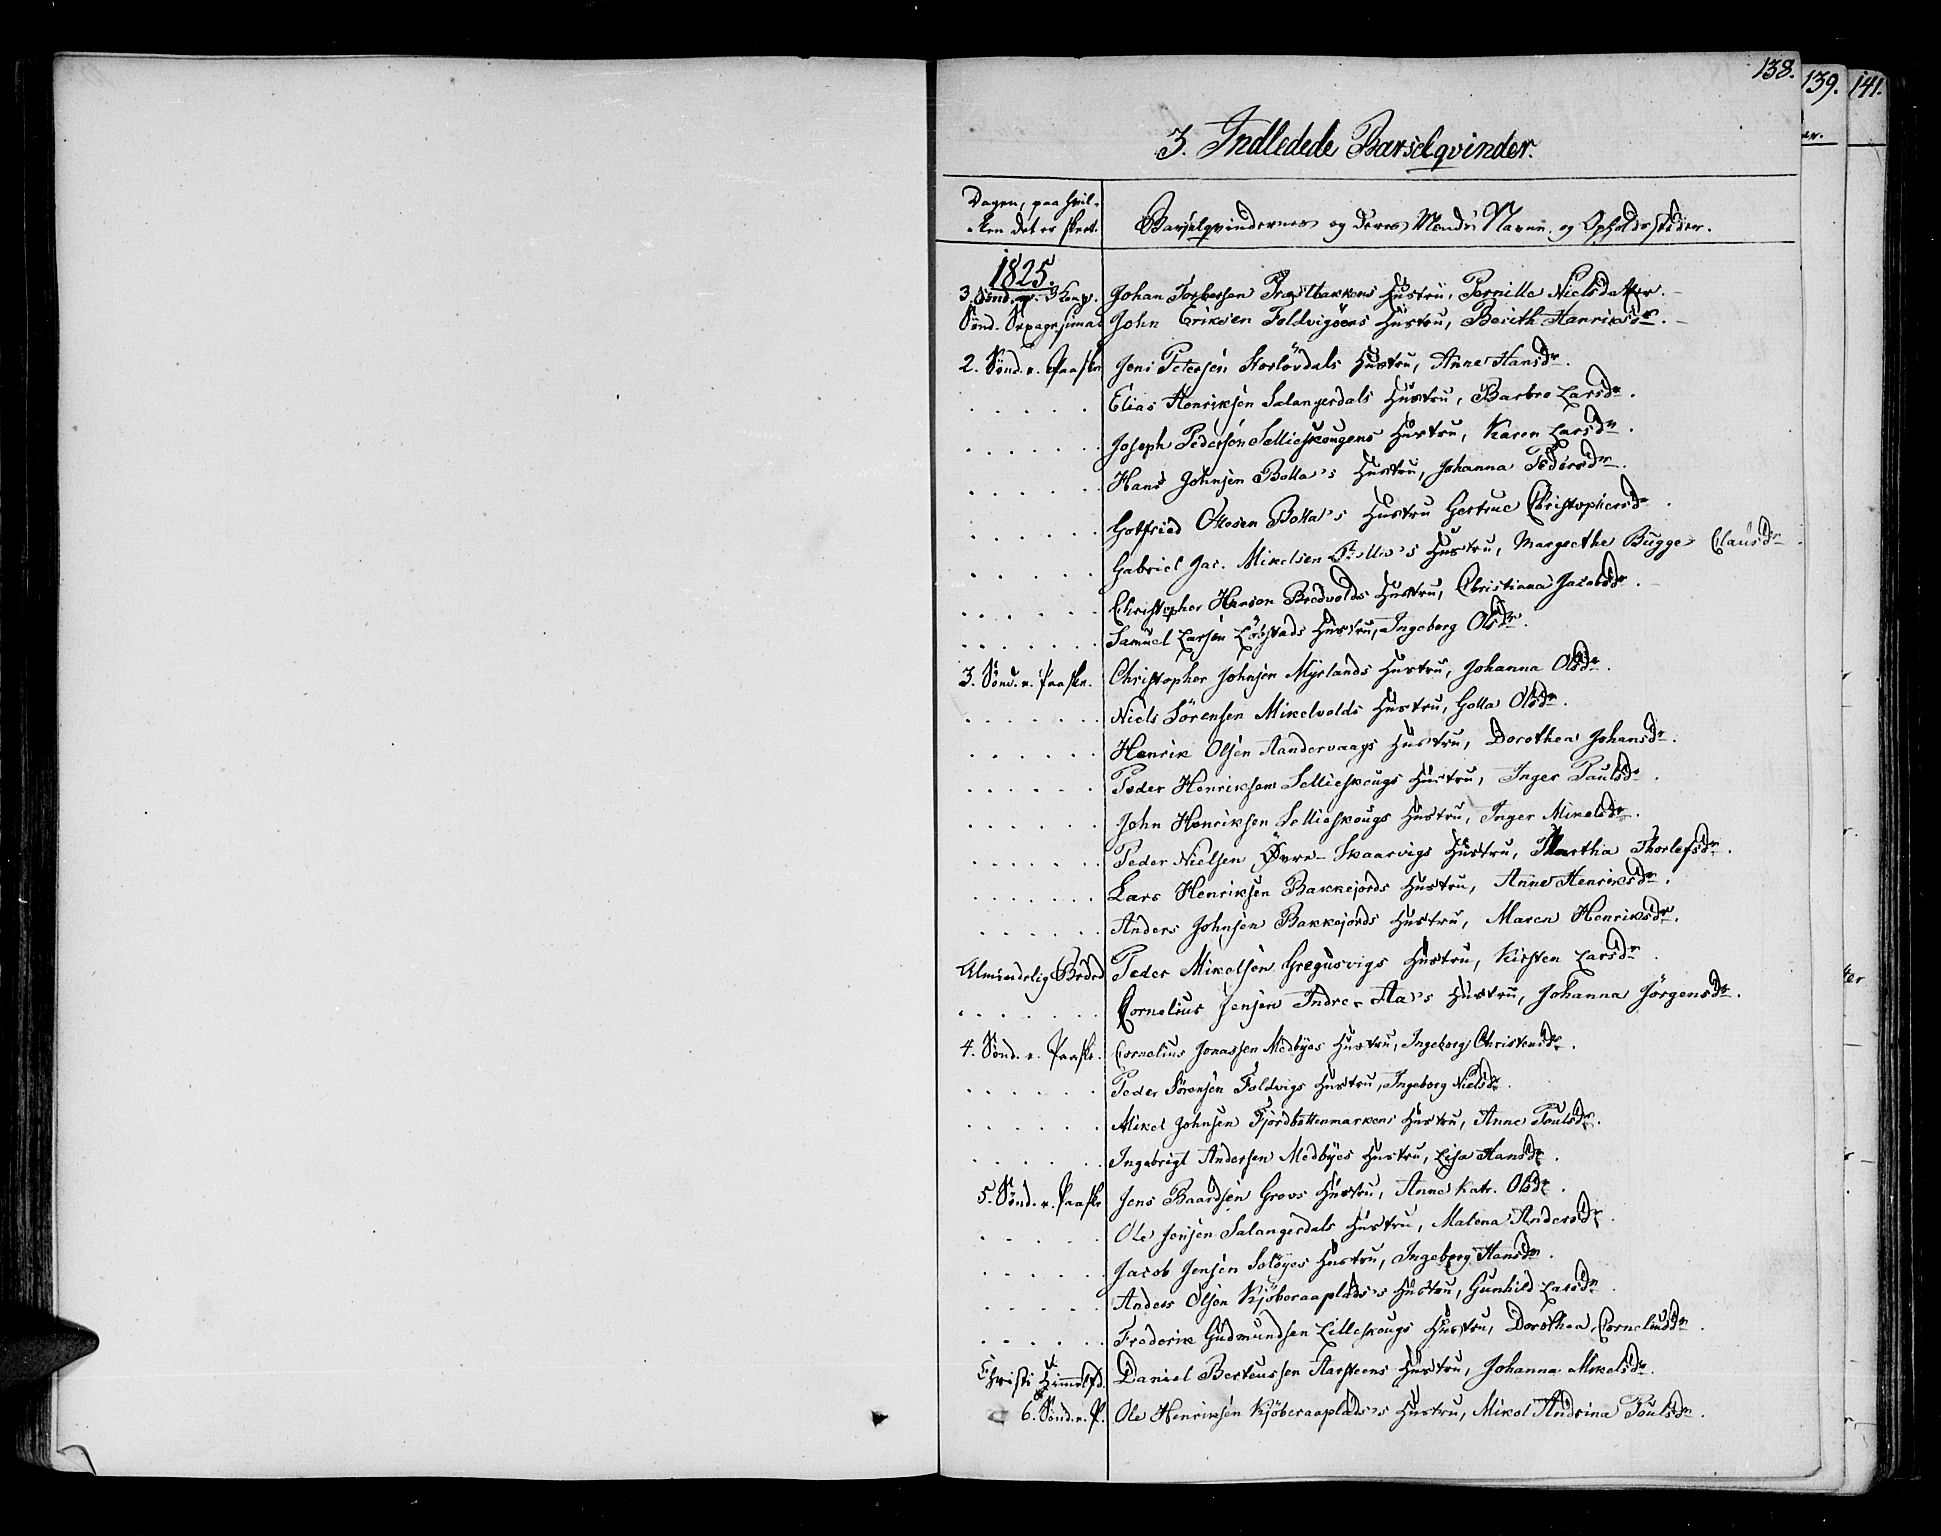 138.
139.
141.
3. Indledede Barselqvinder.
Dagen, paa hvil-
-ken det er skeet.
Barselqvindernes og deres Mænds Navne og Opholdsstæder.
1825.
3. Sønd. p. 3 Kong. Johan Torbersen Præstbakkens Hustru, Pernille Nielsdatter.
Sønd. Sexagesima Johan Eriksen Foldvigöens Hustru, Berith Henriksdr.
2. Sønd. e. Paaske Jens Petersen Storlövdals Hustru, Anne Hansdr.
Elias Henriksen Salangerdals Hustru, Barbro Larsdr.
Joseph Pedersen Sellieskougens Hustru, Karen Larsdr.
Hans Johnsen Bolla's Hustru, Johanna Pedersdr.
Gotfried Olesen Bolla's Hustru Gertrue Christophersdr.
Gabriel Jac. Mikelsen Hustru, Margrethe Bugge Clausdr.
Christopher Hansen Bredvolds Hustru, Christiana Jacobsdr.
Samuel Larsen Löbstads Hustru, Ingeborg Olsdr.
3. Sønd. e. Paaske. Christopher Johnsen Myrlands Hustru, Johanna Olsdr.
Niels Sörensen Mikelvolds Hustru, Golla Olsdr.
Henrik Olsen Aandervaags Hustru, Dorothea Johansdr.
Peder Henriksens Sellieskougs Hustru, Inger Paulsdr.
John Henriksen Sellieskougs Hustru, Inger Mikelsdr.
Peder Nielsen Øvre-Skaarvigs Hustru, Martha Thorlefsdr.
Lars Henriksen Bakkejords Hustru, Anne Henriksdr.
Anders Johnsen Bakkejords Hustru, Maren Henriksdr.
Almindelig Beded. Peder Mikelsen Gregusvigs Hustru, Kirsten Larsdr.
Cornelius Jensen Indre-Aa's Hustru, Johanna Jörgensdr.
4. Sønd. e. Paaske. Cornelius Jonassen Medbyes Hustru, Ingeborg Christensdr.
Peder Sörensen Foldvigs Hustru, Ingeborg Nielsdr.
Mikel Johnsen Fjordbottenmarkens Hustru, Anne Poulsdr.
Ingebrigt Andersen Medbyes Hustru, Lisa Hansdr.
5. Sønd. e. Paaske Jens Baardsen Grovs Hustru, Anne Katr. Olsdr.
Ole Jensen Salangerdals Hustru, Malena Andersdr.
Jacob Jensen Solöyes Hustru, Ingeborg Hansdr.
Anders Olsen Kjöberaaplads's Hustru, Gunhild Larsdr.
Frederik Gudmundsen Lilleskougs Hustru, Dorothea Corneliusdr.
Christi Himmelfd. Daniel Berteussen Aarsteens Hustru, Johanna Mikelsdr.
6. Sønd. e. P. Ole Henriksen Kjöberaaplads's Hustru, Mikel Andrina Poulsdr.